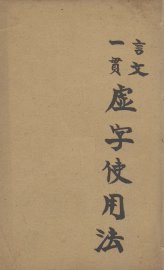 言文
一贯
虚字使用法